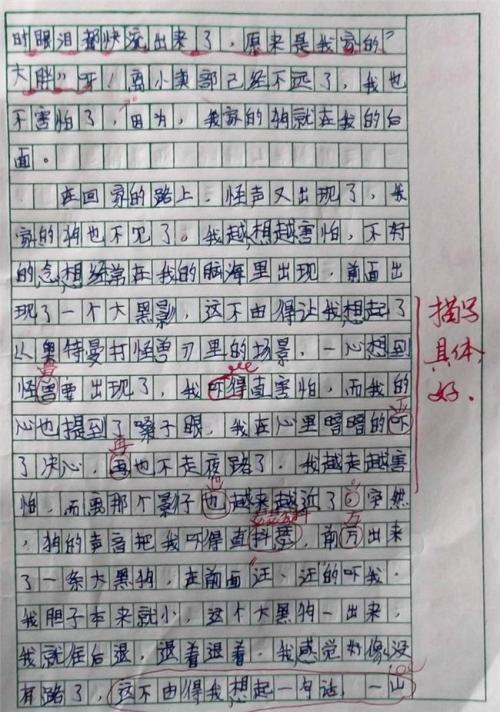 时眼泪都快流出来了，原来是我家的“
大胖”呀！离小卖部已经不远了，我也
不害怕了，因为，我家的狗就在我的后
面。
在回家的路上，怪声又出现了，我
家的狗也不见了。我越想越害怕，不好
的念想经常在我的脑海里出现，前面出
现了一个大黑影，这不由得让我想起了
从奥特曼打怪兽刀里的场景，一心想到
怪兽要出现了，我吓得直害怕，而我的
心也提到了嗓子眼，我在心里暗暗的下
了决心，再也不走夜路了，我越走越害
怕，而离那个影子也越来越近了。突然
，狗的声音把我吓得直抖，前方出来
了一条大黑狗，在前面汪、汪的吓我。
我胆子本来就小，这个大黑狗一出来，
我就往后退，退着退着，我感觉好像没
有路了，这不由得我想起一句话，一山
描写
具体，
好.